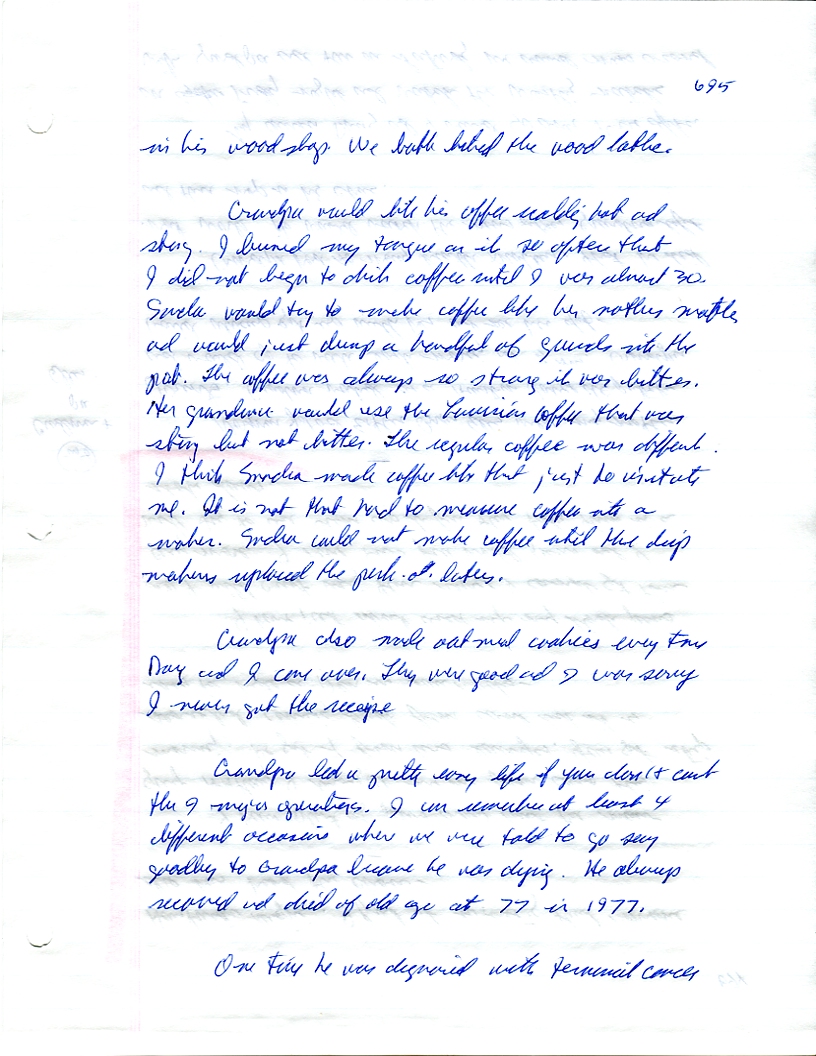 695
in his wood shop. We both liked the wood lathe.
Grandpa would like his coffee scalding hot and
strong. I burned my tongue on it so often that
I did not begin to drink coffee until I was almost 30.
Sandra would try to make coffee like her mothers
and would just dump a handful of grounds into the
pot. The coffee was always so strong it was bitter.
Her grandma would use the Louisiana coffee that was
strong but not bitter. The regular coffee was different.
I think Sandra made coffee like that just to irritate
me. It is not that hard to measure coffee into a
maker. Sandra could not make coffee until the drip
makers replaced the perk
Grandpa also made oatmeal cookies every time
Doug and I came over. They were good and I was sorry
I never got the recipe
Grandpa led a pretty easy life if you don't count
the 9 major operations. I can remember at least 4
different occasions where we were told to go say
goodby to Grandpa because he was dying. He always
recovered and died of old age at 77 in 1977.
One time he was diagnosed with terminal cancer